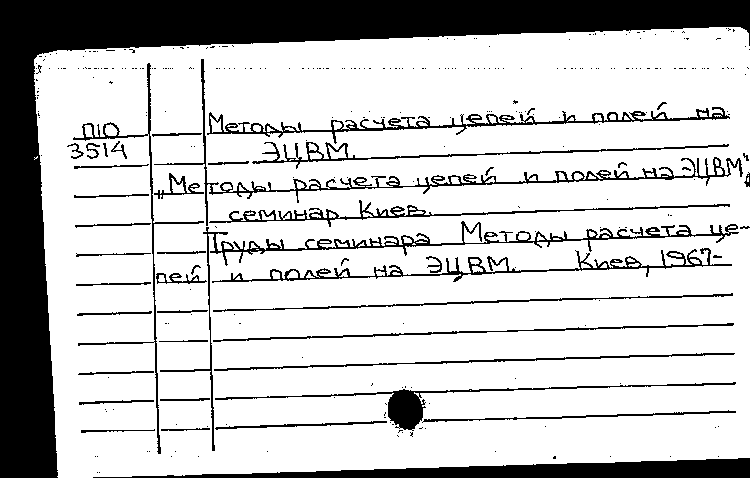 Методы расчета цепей и полей на
П10
3514
ЭЦВМ.
„Методы расчета цепей и полей на ЭЦВМ",
семинар. Киев.
Труды семинара Методы расчета це-
пей и полей на ЭЦВМ. Киев, 1967-